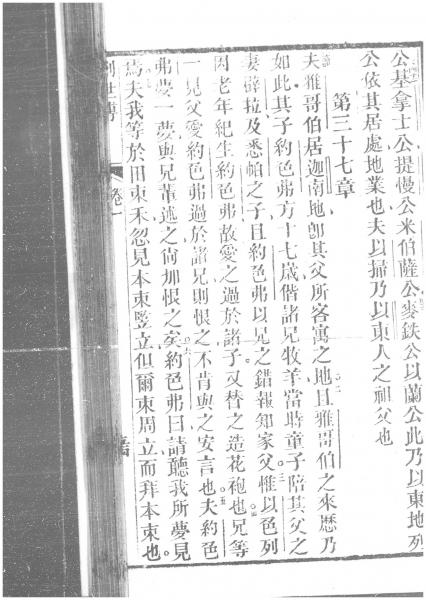 公基拿士公提慢公米伯薩公麥鉄公以蘭公此乃以東地列
公依其居處地業也夫以掃乃以東人之祖父也
第三十七章
夫雅哥伯居迦南地卽其父所客寓之地且雅哥伯之來歷乃
如此其子約色弗方十七歲偕諸兄牧羊當時童子陪其父之
妻辟拉及悉帕之子且約色弗以兄之錯報知家父惟以色列
因老年紀生約色弗故愛之過於諸子又替之造花袍也兄等
一見父愛約色弗過於諸兄則恨之不肯與之安言也夫約色
弗夢一夢與兄輩述之尚加恨之矣約色弗曰請聽我所夢見
焉夫我等於田束禾忽見本束豎立但爾束周立而拜本束也
創世傳
卷一